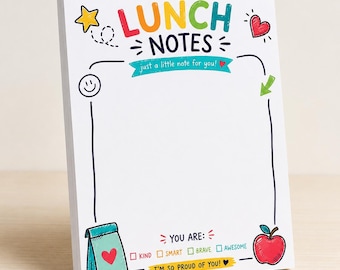 LUNCH
NOTES
just a little note for you!
YOU ARE:
KIND SMART BRAVE AWESOME
I'M SO PROUD OF YOU!